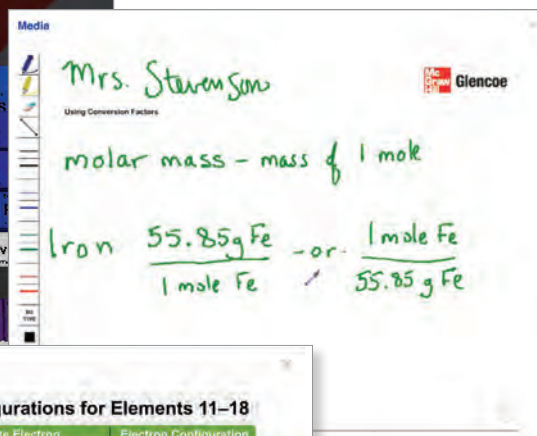 Media
Mrs. Stevenson
Mc
Graw
Hill
Glencoe
Using Conversion Factors
molar mass - mass of 1 mole
Iron 55.85g Fe -or- 1 mole Fe
1 mole Fe 55.85 g Fe
gurations for Elements 11–18
Electron Electron Configuration